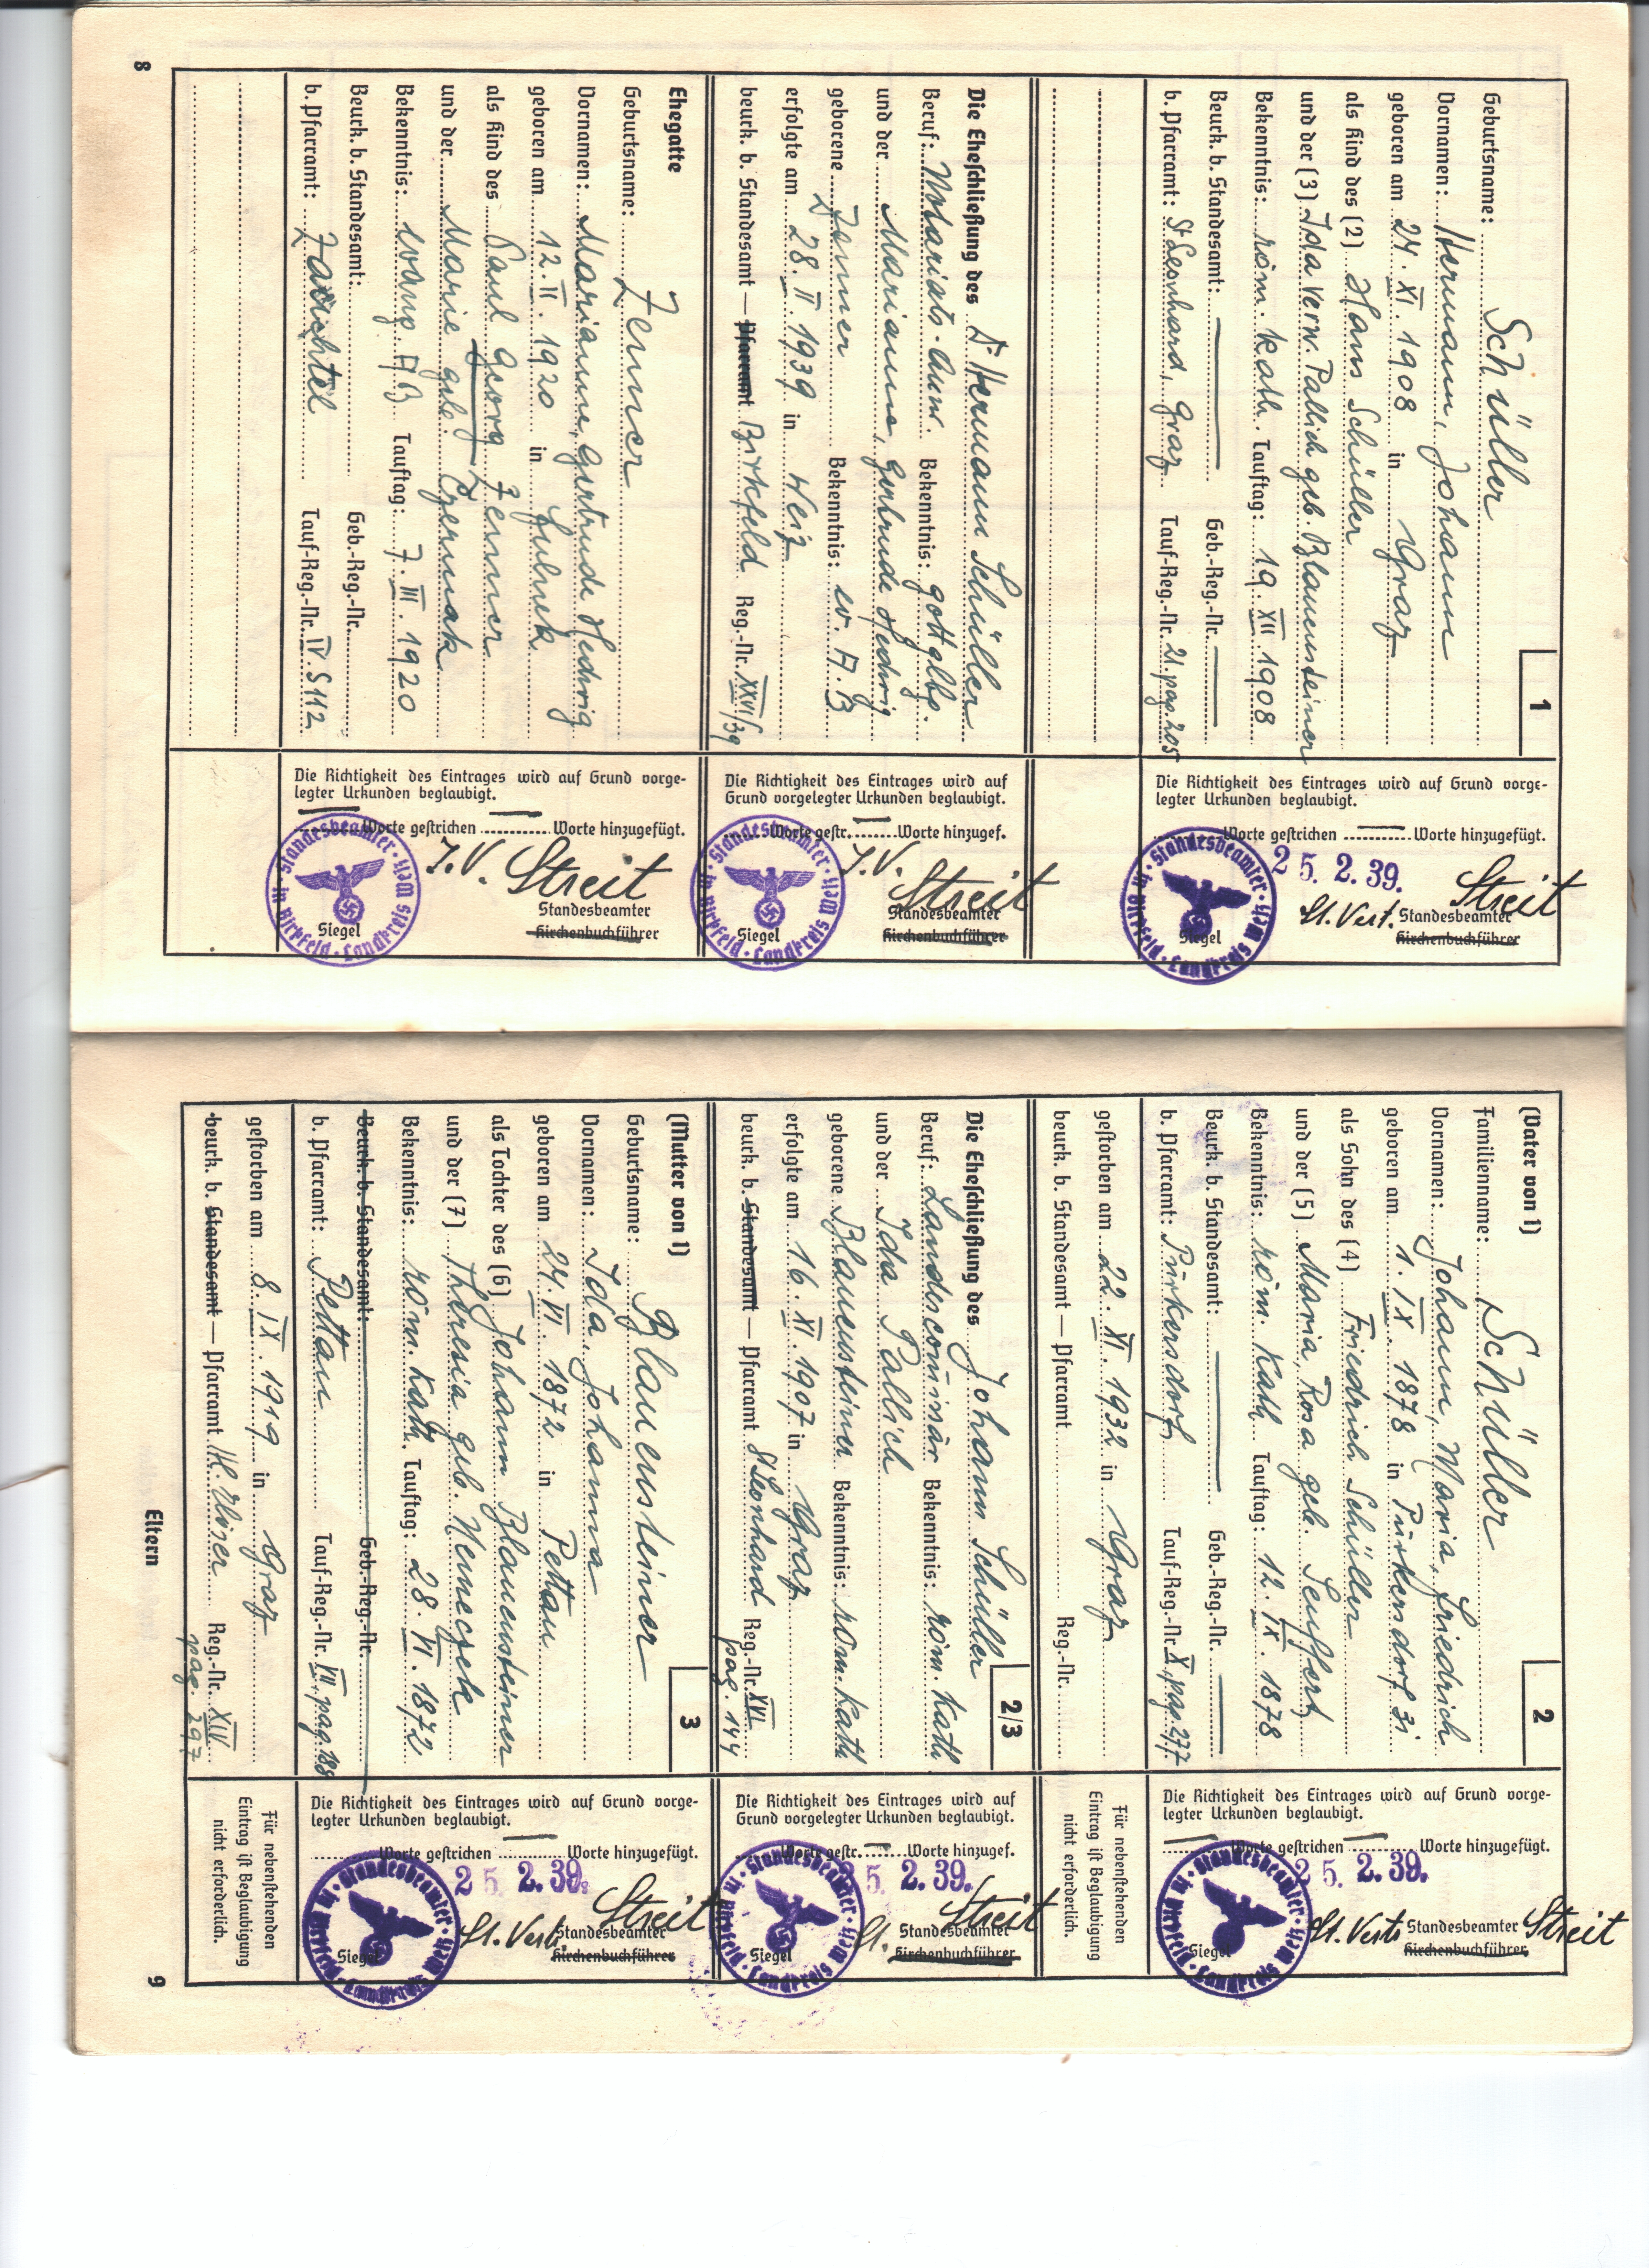 8
1
Geburtsname: Schüller
Vornamen: Hermann, Johann
geboren am 24. XI. 1908 in Graz
als Kind des (2) Hans Schüller
und der (3) Ida verw. Pallich geb. Blauensteiner
Bekenntnis: röm. kath. Tauftag: 19. XII 1908
Beurk. b. Standesamt: Geb.-Reg.-Nr.
b. Pfarramt: St Leonhard, Graz Tauf-Reg.-Nr. 21. pag. 205
Die Richtigkeit des Eintrages wird auf Grund vorge-
legter Urkunden beglaubigt.
Worte gestrichen Worte hinzugefügt.
25. 2. 39.
Streit
St. Vert. Standesbeamter
Siegel Kirchenbuchführer
Standesbeamter in Birkfeld · Landkreis Weiz
Die Eheschließung des Dr Hermann Schüller
Beruf: Notariats-Anw. Bekenntnis: gottglbg.
und der Marianne, Gertrude Hedwig
geborene Zenner Bekenntnis: ev. A. B
erfolgte am 28. II. 1939 in Weiz
beurk. b. Standesamt — Pfarramt Birkfeld Reg.-Nr. XXVI/39
Die Richtigkeit des Eintrages wird auf
Grund vorgelegter Urkunden beglaubigt.
Worte gestr. Worte hinzugef.
J. V. Streit
Standesbeamter
Siegel Kirchenbuchführer
Standesbeamter in Birkfeld · Landkreis Weiz
Ehegatte
Geburtsname: Zenner
Vornamen: Marianne, Gertrude Hedwig
geboren am 12. II. 1920 in Fulnek
als Kind des Paul Georg Zenner
und der Marie geb. Czermak
Bekenntnis: evang. A B Tauftag: 7. III. 1920
Beurk. b. Standesamt: Geb.-Reg.-Nr.
b. Pfarramt: Zauchtel Tauf-Reg.-Nr. IV. S 112
Die Richtigkeit des Eintrages wird auf Grund vorge-
legter Urkunden beglaubigt.
Worte gestrichen Worte hinzugefügt.
J. V. Streit
Standesbeamter
Siegel Kirchenbuchführer
Standesbeamter in Birkfeld · Landkreis Weiz
(Vater von 1) 2
Familienname: Schüller
Vornamen: Johann, Maria, Friedrich
geboren am 1. IX. 1878 in Pürkersdorf
als Sohn des (4) Friedrich Schüller
und der (5) Maria, Rosa geb. Seuffert
Bekenntnis: röm. kath Tauftag: 12. IX. 1878
Beurk. b. Standesamt: Geb.-Reg.-Nr.
b. Pfarramt: Pürkersdorf Tauf-Reg.-Nr. X, pag. 277
Die Richtigkeit des Eintrages wird auf Grund vorge-
legter Urkunden beglaubigt.
Worte gestrichen Worte hinzugefügt.
25. 2. 39.
St. Vertr. Standesbeamter Streit
Siegel Kirchenbuchführer
Standesbeamter in Birkfeld · Landkreis Weiz
gestorben am 22. XI. 1932 in Graz
beurk. b. Standesamt — Pfarramt Reg.-Nr.
Für nebenstehenden
Eintrag ist Beglaubigung
nicht erforderlich.
2/3
Die Eheschließung des Johann Schüller
Beruf: Landescommisär Bekenntnis: röm. kath
und der Ida Pallich
geborene Blauensteiner Bekenntnis: röm. kath
erfolgte am 16. XI. 1907 in Graz
beurk. b. Standesamt — Pfarramt St Leonhard Reg.-Nr. XVI
pag. 144
Die Richtigkeit des Eintrages wird auf
Grund vorgelegter Urkunden beglaubigt.
Worte gestr. Worte hinzugef.
25. 2. 39.
Streit
St. Standesbeamter
Siegel Kirchenbuchführer
Standesbeamter in Birkfeld · Landkreis Weiz
(Mutter von 1) 3
Geburtsname: Blauensteiner
Vornamen: Ida, Johanna
geboren am 24. VI. 1872 in Pettau
als Tochter des (6) Johann Blauensteiner
und der (7) Theresia geb. Nemeczek
Bekenntnis: röm. kath. Tauftag: 28. VI. 1872
Beurk. b. Standesamt: Geb.-Reg.-Nr.
b. Pfarramt: Pettau Tauf-Reg.-Nr. VII, pag.
Die Richtigkeit des Eintrages wird auf Grund vorge-
legter Urkunden beglaubigt.
Worte gestrichen Worte hinzugefügt.
25. 2. 39.
Streit
St. Vertr. Standesbeamter
Siegel Kirchenbuchführer
Standesbeamter in Birkfeld · Landkreis Weiz
gestorben am 8. IX. 1919 in Graz
beurk. b. Standesamt — Pfarramt Reg.-Nr. XIV
pag. 297
Für nebenstehenden
Eintrag ist Beglaubigung
nicht erforderlich.
Eltern
9